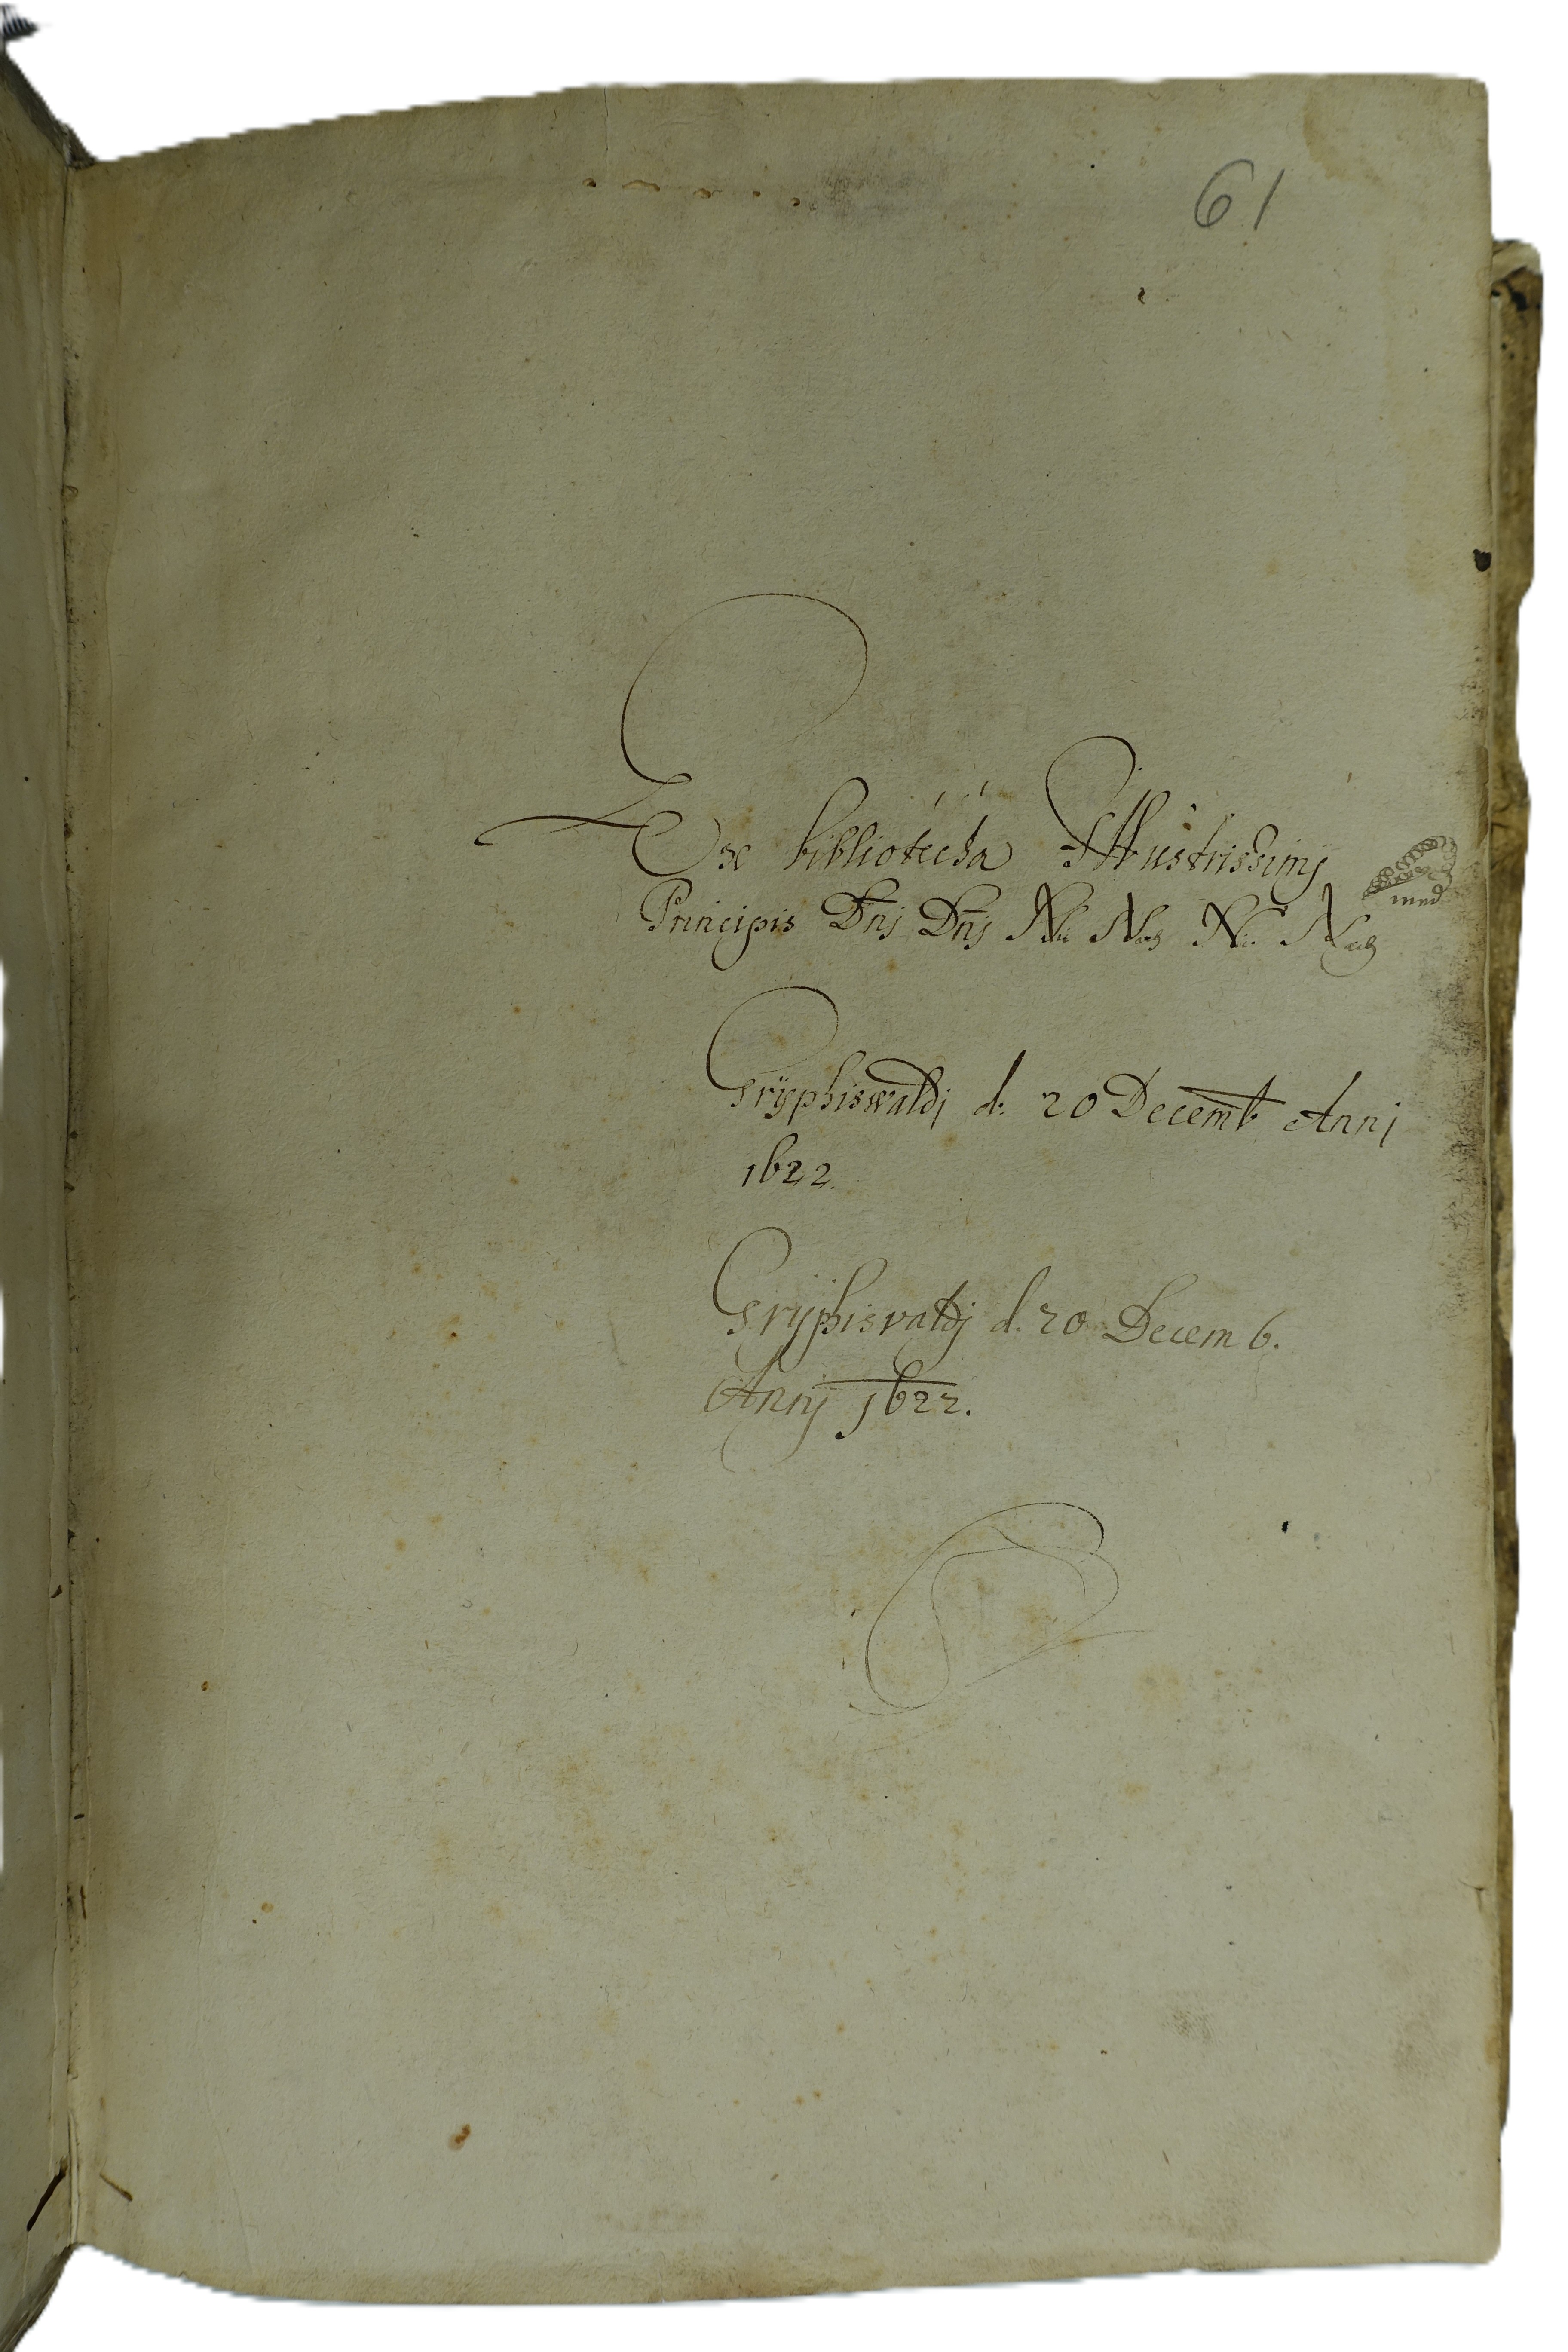 61
Ex bibliotecha Illustrissimj
Principis Dnj Dnj N N N N
Gryphiswaldj d. 20 Decemb Annj
1622.
Gryphisvaldj d. 20 Decemb.
Annj 1622.